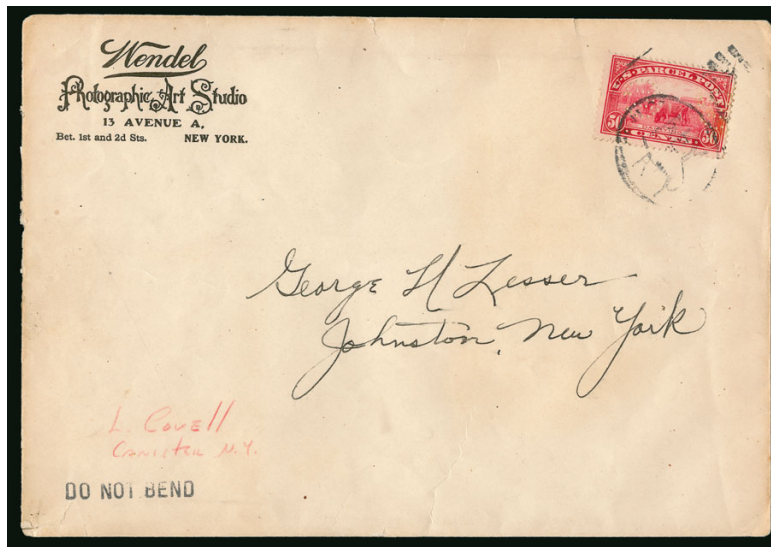 Wendel
Photographic Art Studio
13 AVENUE A,
Bet. 1st and 2d Sts. NEW YORK.
U.S. PARCEL POST
50 50
CENTS
George H Lesser
Johnston, New York
L. Covell
Canisteo N.Y.
DO NOT BEND